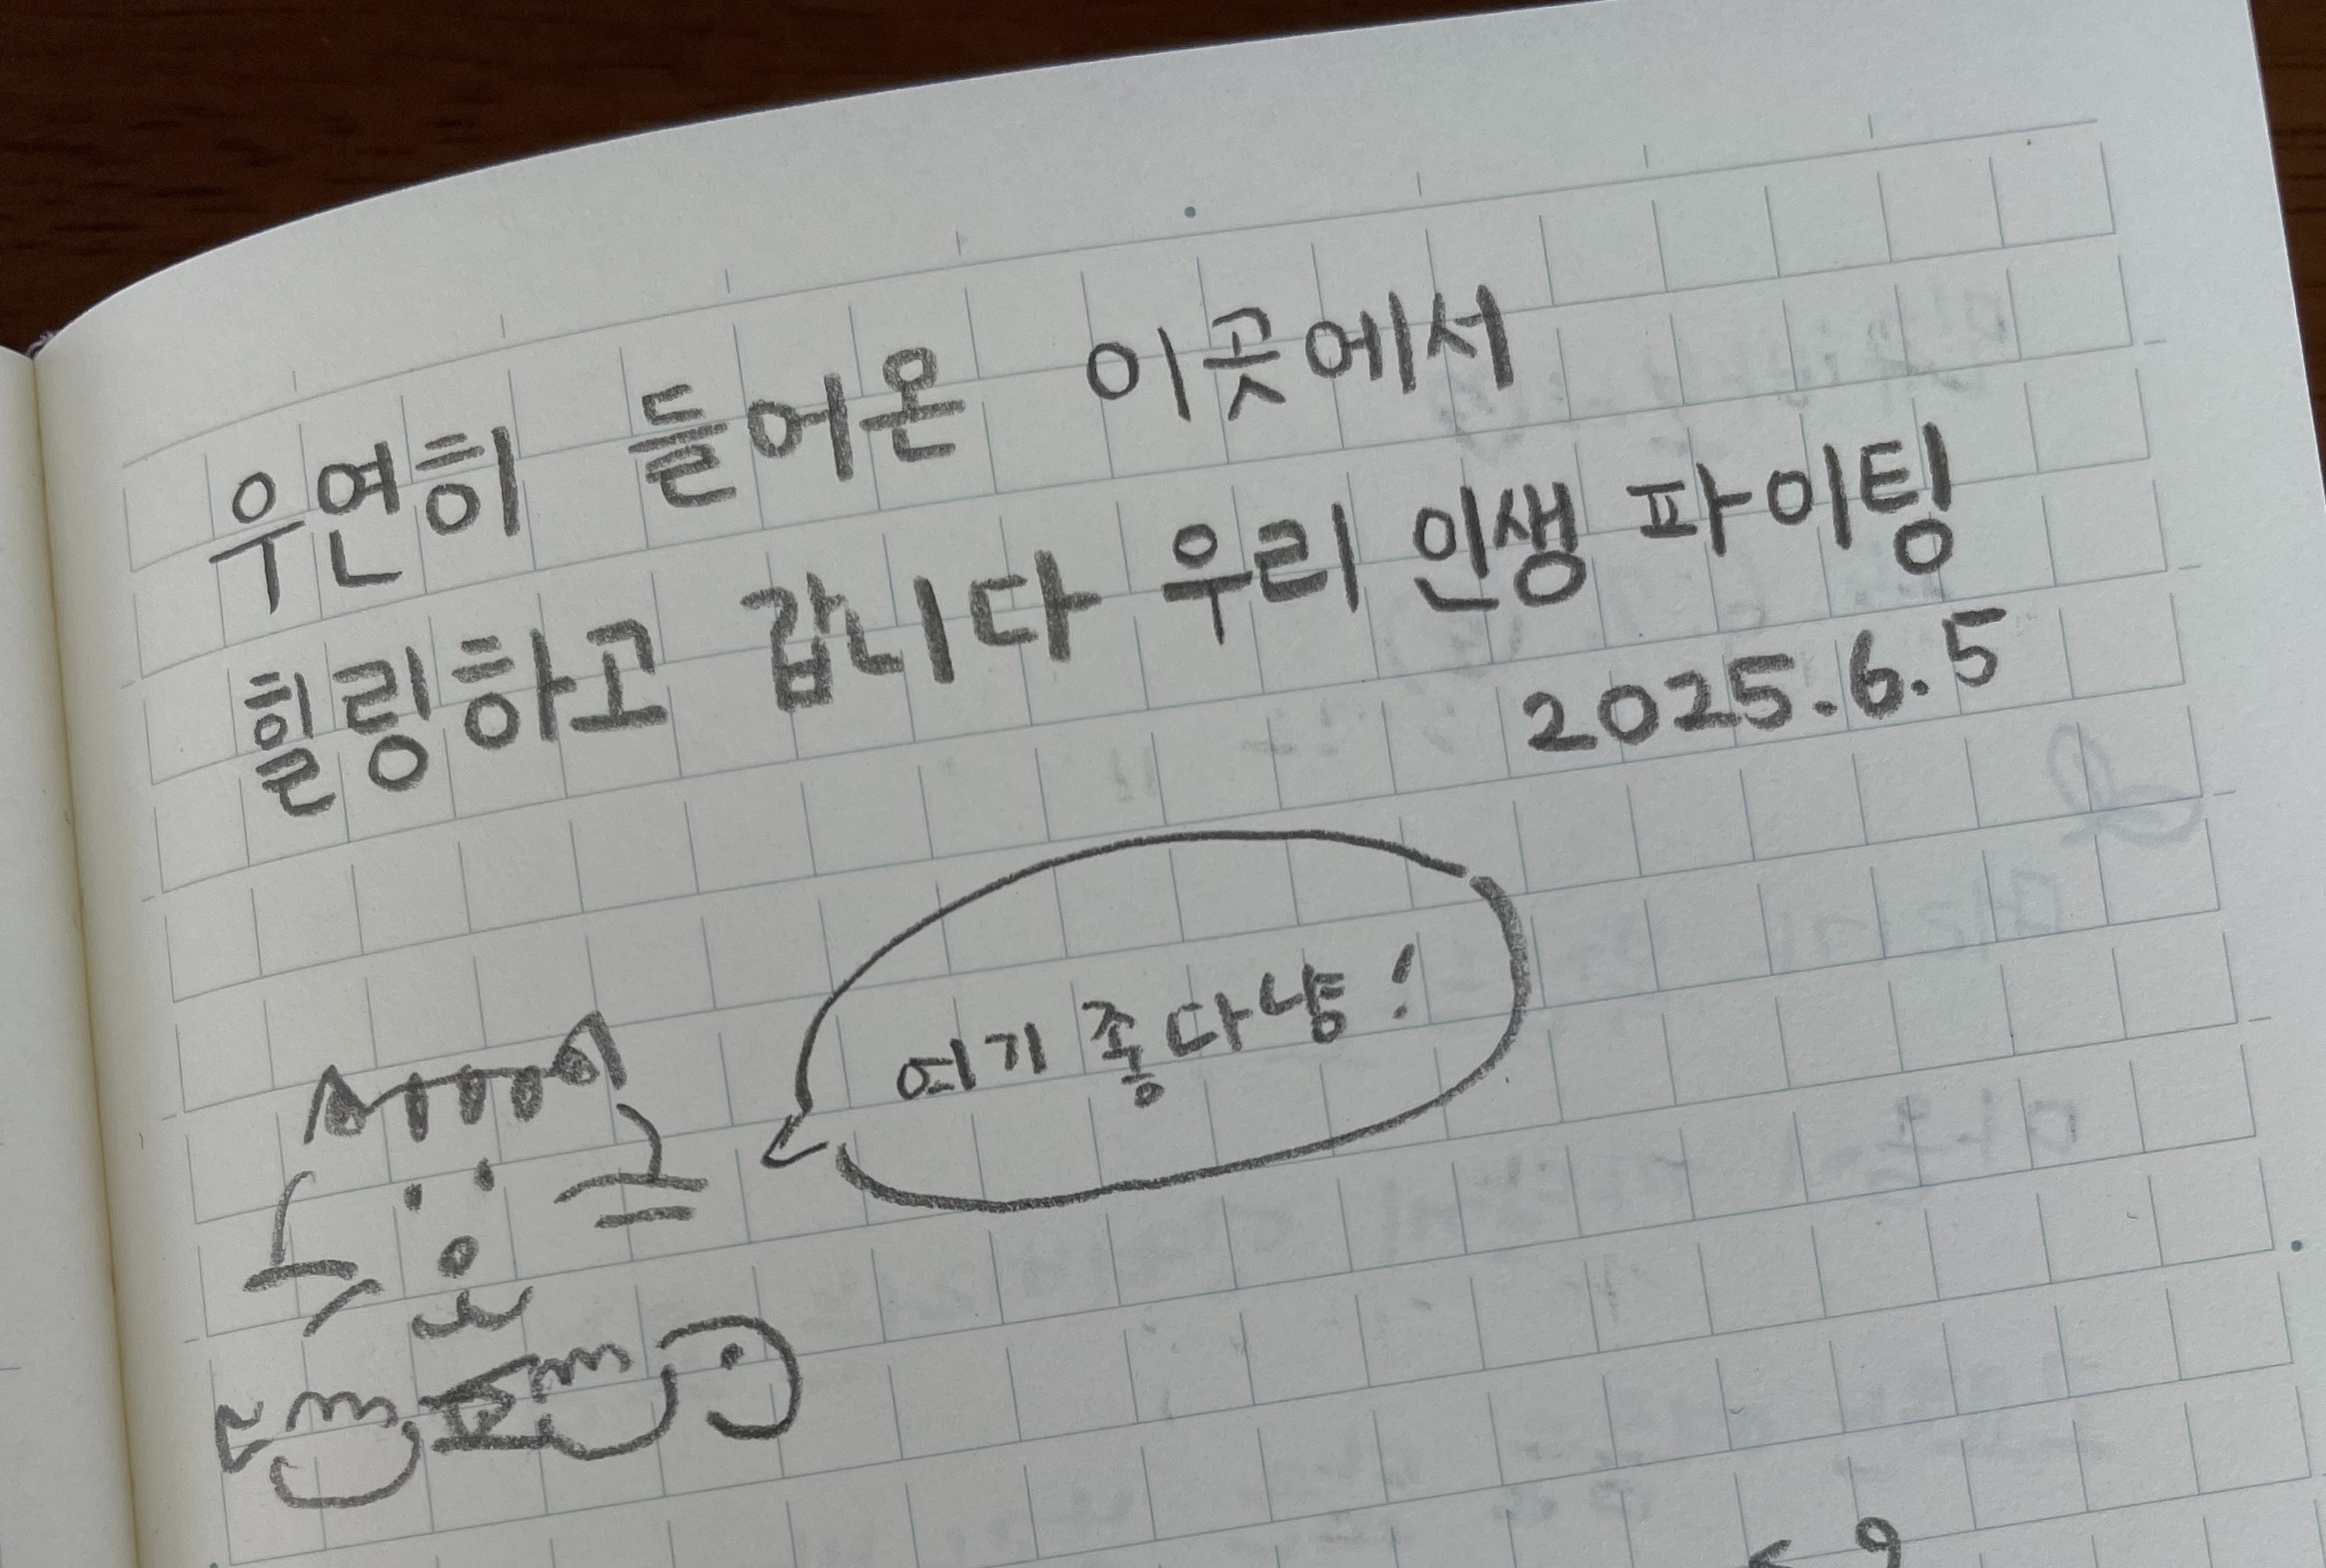 우연히 들어온 이곳에서
힐링하고 갑니다 우리 인생 파이팅
2025.6.5
여기 좋다냥!